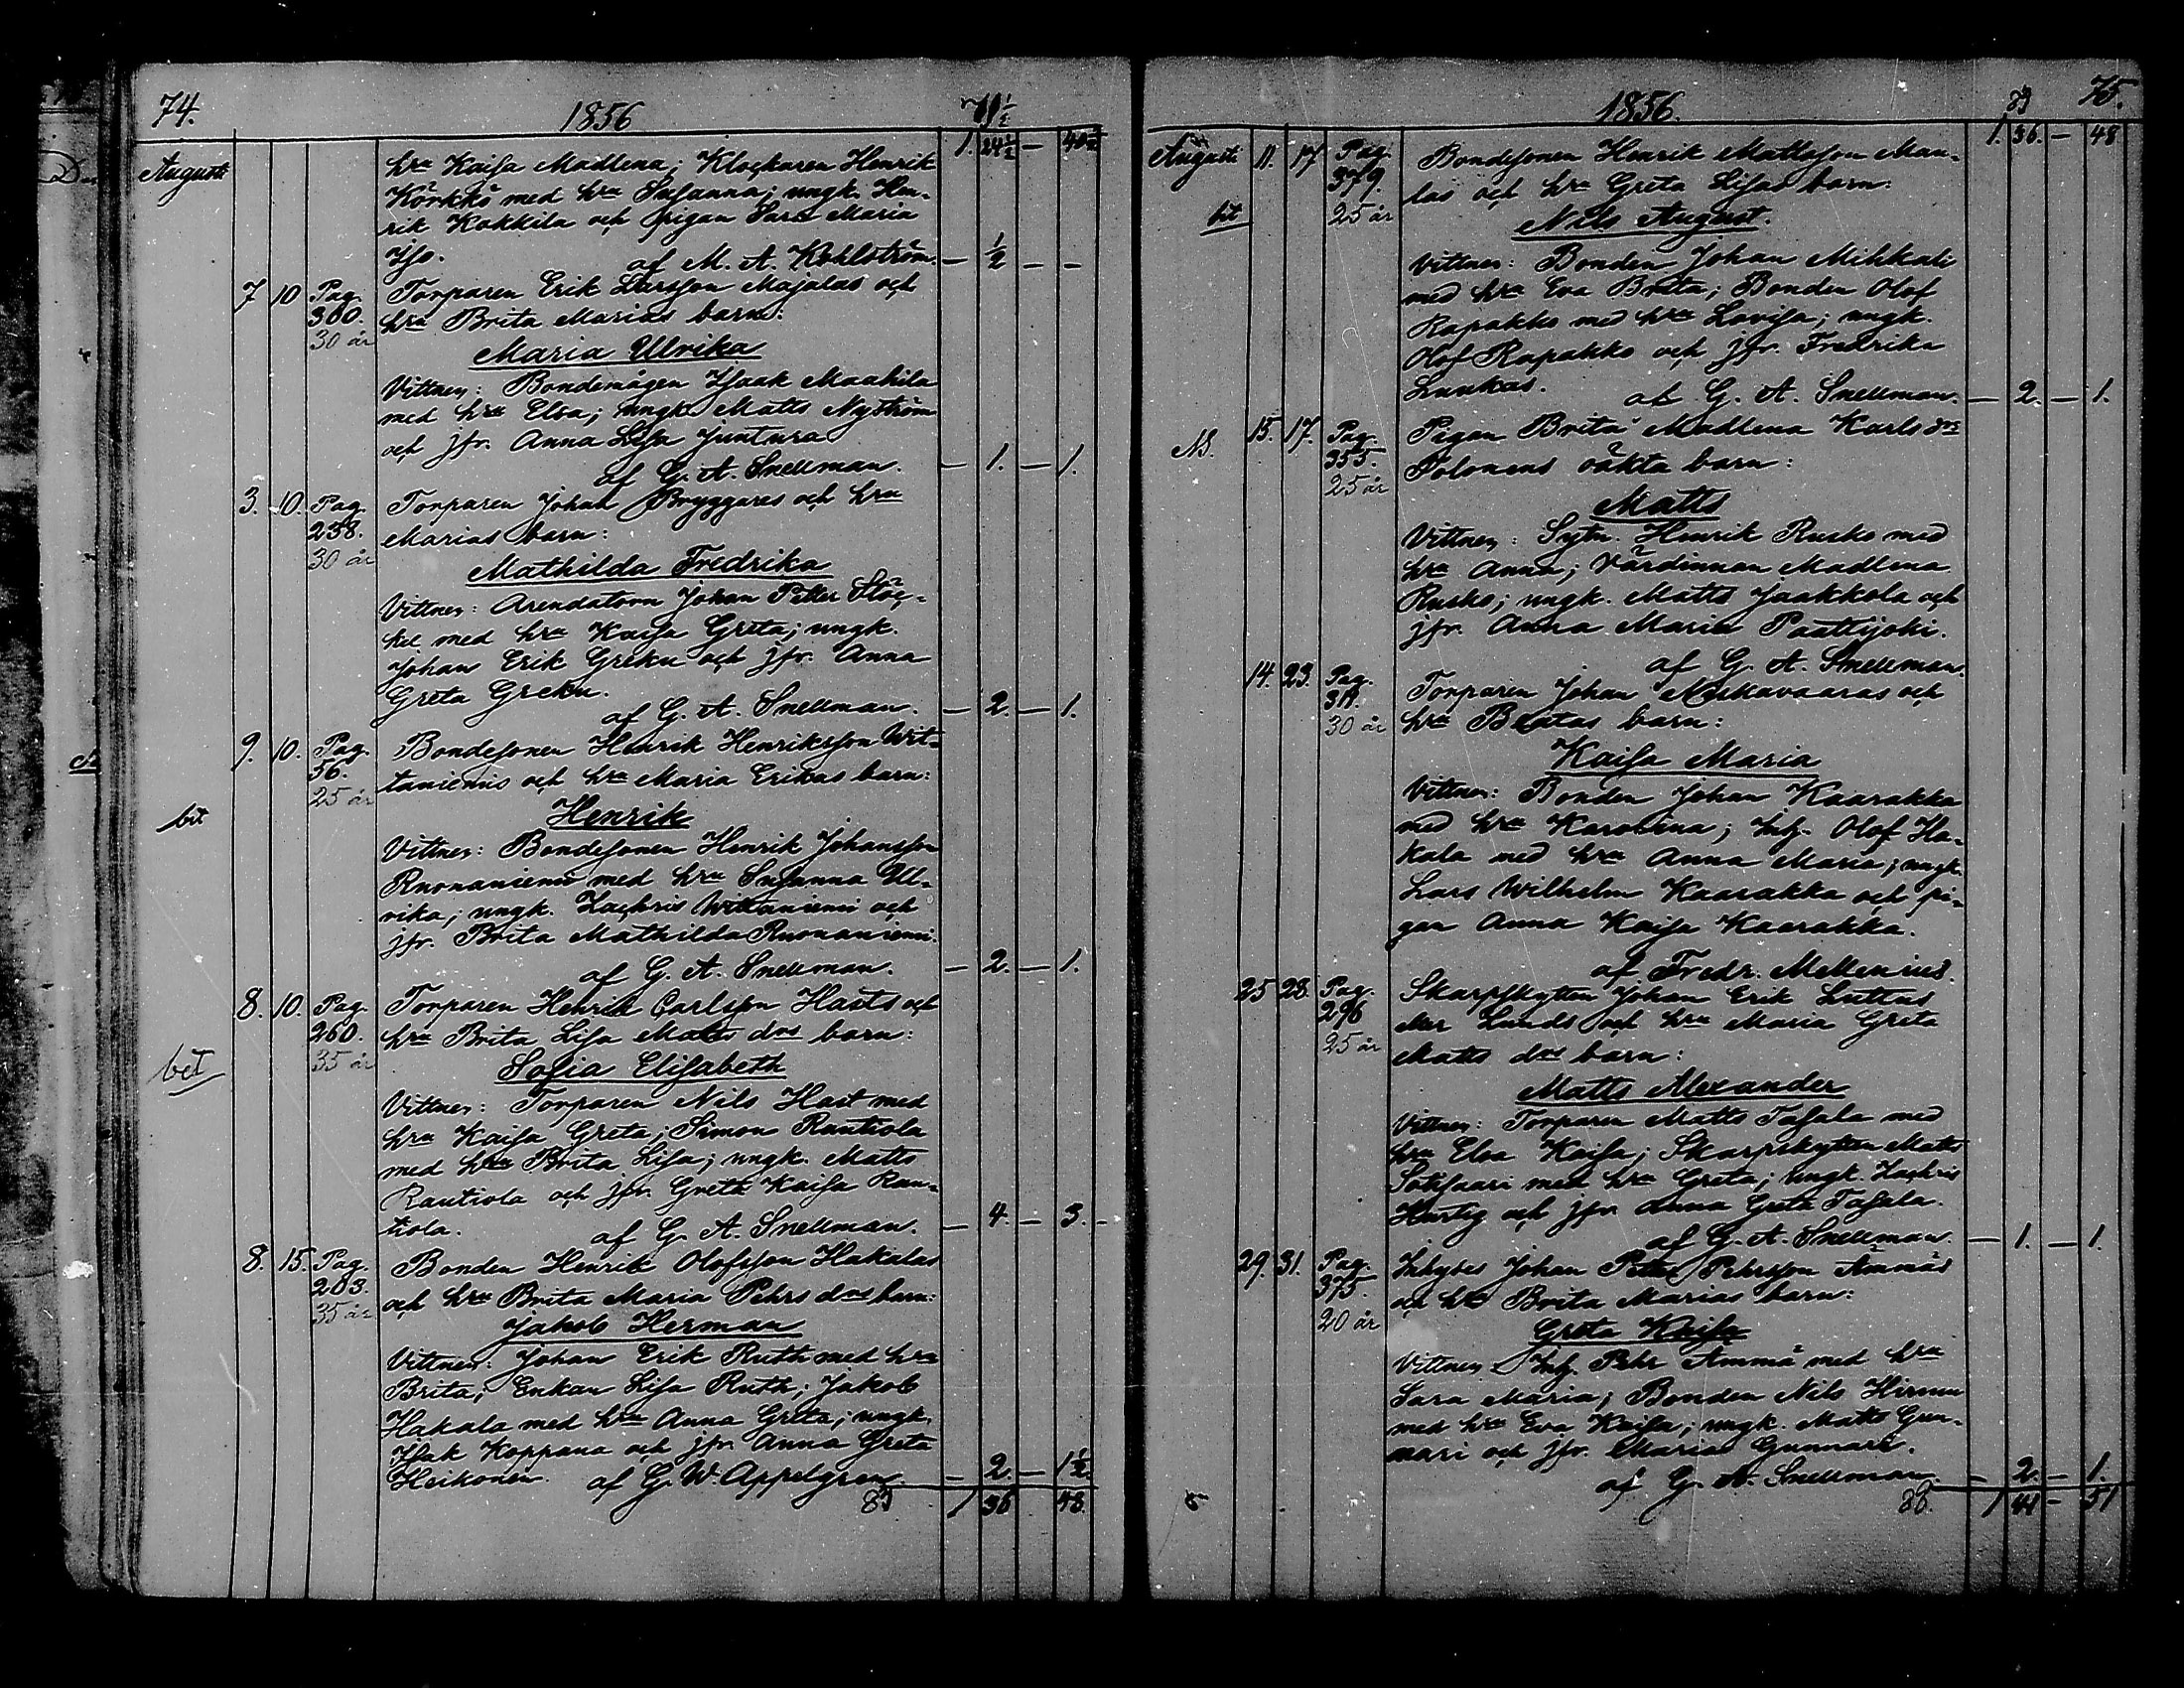 74. 1856
Augusti
hru Kaisa Madlena; Klockaren Henrik 1. 24½ — 40½
Körkkö med hru Susanna; ungk. Hen-
rik Kakkila och pigan Sara Maria
Iso. af M. A. Kohlström. — ½ — —
7 10 Pag. Torparen Erik Larsson Majalas och
300. hru Brita Marias barn:
30 år
Maria Ulrika
Vittnen: Bondemågen Isaak Maahila
med hru Elsa; ungk. Matts Nyström
och jfr. Anna Lisa Juntura
af G. A. Snellman. — 1. — 1.
3. 10. Pag. Torparen Johan Bryggares och hru
238. Marias barn:
30 år
Mathilda Fredrika
Vittnen: Arendatorn Johan Petter Stöc-
kel med hru Kaisa Greta; ungk.
Johan Erik Greku och jfr. Anna
Greta Greku.
af G. A. Snellman. — 2. — 1.
9. 10. Pag. Bondesonen Henrik Henriksson Wit-
56. taniemis och hru Maria Erikas barn:
25 år
bet Henrik
Vittnen: Bondesonen Henrik Johansson
Ruonaniemi med hru Susanna Ul-
rika; ungk. Zachris Wittaniemi och
jfr. Brita Mathilda Ruonaniemi.
af G. A. Snellman. — 2. — 1.
8. 10. Pag. Torparen Henrik Carlsson Hasts och
260. hru Brita Lisa Matts drs barn:
35 år
bet Sofia Elisabeth
Vittnen: Torparen Nils Hast med
hru Kaisa Greta; Simon Rautiola
med hru Brita Lisa; ungk. Matts
Rautiola och jfr. Greta Kaisa Rau-
tiola. af G. A. Snellman. — 4. — 3. -
8. 15. Pag. Bonden Henrik Olofsson Hakalas
203. och hru Brita Maria Pehrs drs barn:
35 år
Jakob Herman
Vittnen: Johan Erik Ruth med hru
Brita; Enkan Lisa Ruth; Jakob
Hakala med hru Anna Greta; ungk.
Isak Koppana och jfr. Anna Greta
Heikonen. af G. W. Appelgren — 2. — 1½
83 1 36 48.
1856. 83 75.
1. 36. — 48
Augusti 11. 17 Pag. Bondesonen Henrik Mattsson Mau-
379. las och hru Greta Lisas barn:
bet 25 år
Nils August.
Vittnen: Bonden Johan Mihkali
med hru Eva Brita; Bonden Olof
Rapakko med hru Lovisa; ungk.
Olof Rapakko och jfr. Fredrika
Luukas. af G. A. Snellman. — 2. — 1.
15. 17. Pag. Pigan Brita Madlena Karls drs
355. Tolonens oäkta barn:
25 år
Matts
Vittnen: Sytn. Henrik Rusko med
hru Anna; Värdinnan Madlena
Rusko; ungk. Matts Jaakkola och
jfr. Anna Maria Paattijoki.
af G. A. Snellman.
14. 23. Pag. Torparen Johan Niskavaaras och
311. hru Beatas barn:
30 år
Kaisa Maria
Vittnen: Bonden Johan Kaarakka
med hru Karolina; Inh. Olof Ha-
kala med hru Anna Maria; ungk.
Lars Wilhelm Kaarakka och pi-
gan Anna Kaisa Kaarakka.
af Fredr. Mellenius.
25 28. Pag. Skarpskytten Johan Erik Luttus
296 eller Lunds och hru Maria Greta
25 år Matts drs barn:
Matts Alexander
Vittnen: Torparen Matts Tasala med
hru Elsa Kaisa; Skarpskytten Matts
Sotisaari med hru Greta; ungk. Zachris
Hurtig och jfr. Anna Greta Tasala.
af G. A. Snellman. — 1. — 1.
29. 31. Pag. Inhyses Johan Petter Pehrsson Ämmäs
375. och hru Brita Marias barn:
20 år
Greta Kaisa
Vittnen: Inh. Pehr Ämmä med hru
Sara Maria; Bonden Nils Hirmu
med hru Eva Kaisa; ungk. Matts Gun-
nari och jfr. Maria Gunnari.
af G. A. Snellman. — 2. — 1.
88. 1 41 — 51